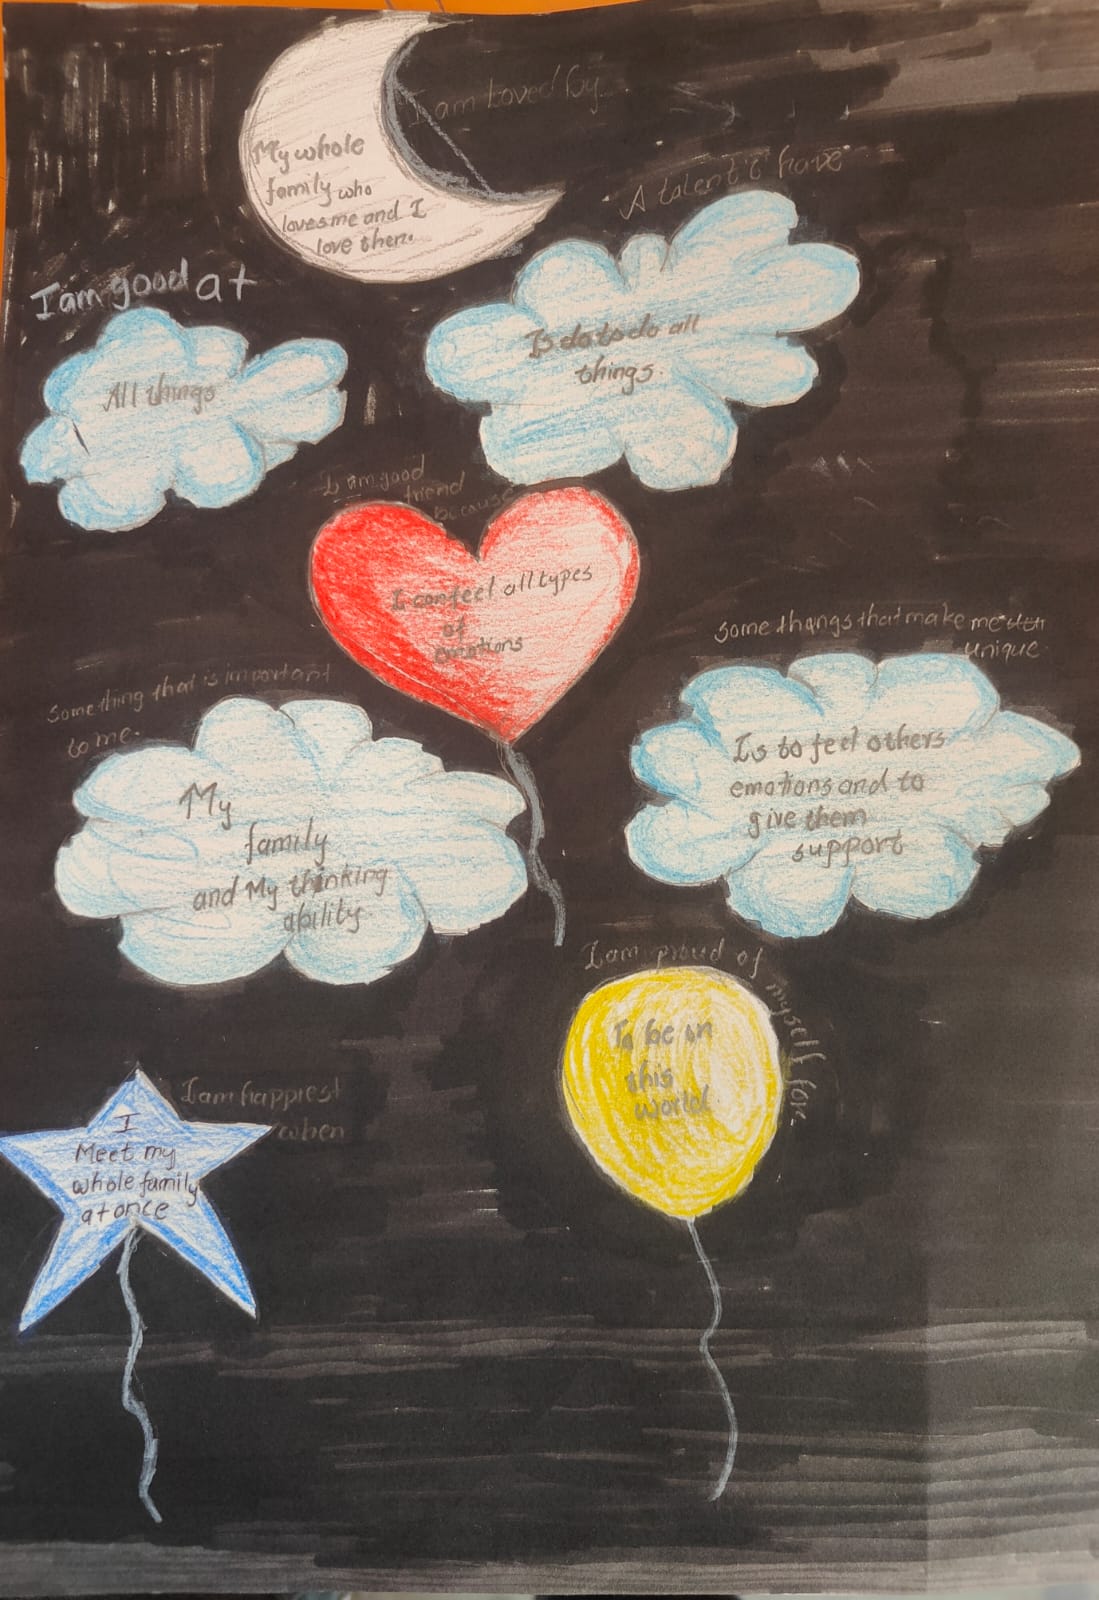 I am Loved By
My whole
family who
loves me and I
love them.
A talent I have
Is do to do all
things.
I am good at
All things
I am good
friend
because
I can feel all types
of
emotions
some thangs that make me
unique
Is to feel others
emotions and to
give them
support
something that is important
to me.
My
family
and My thinking
ability.
I am proud of myself for
To be on
this
world.
I am happiest
when
I
Meet my
whole family
at once